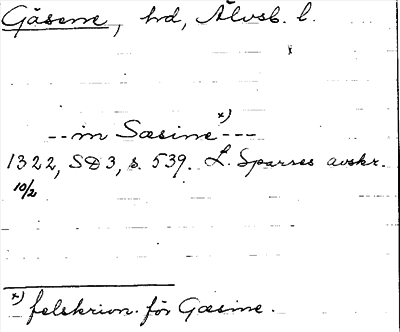 Gäsene, hd, Älvsb. l.
--in Sæsine*)---
1322, SD3, s. 539. L. Sparres avskr.
10/2
*) felskrivn. för Gæsine.